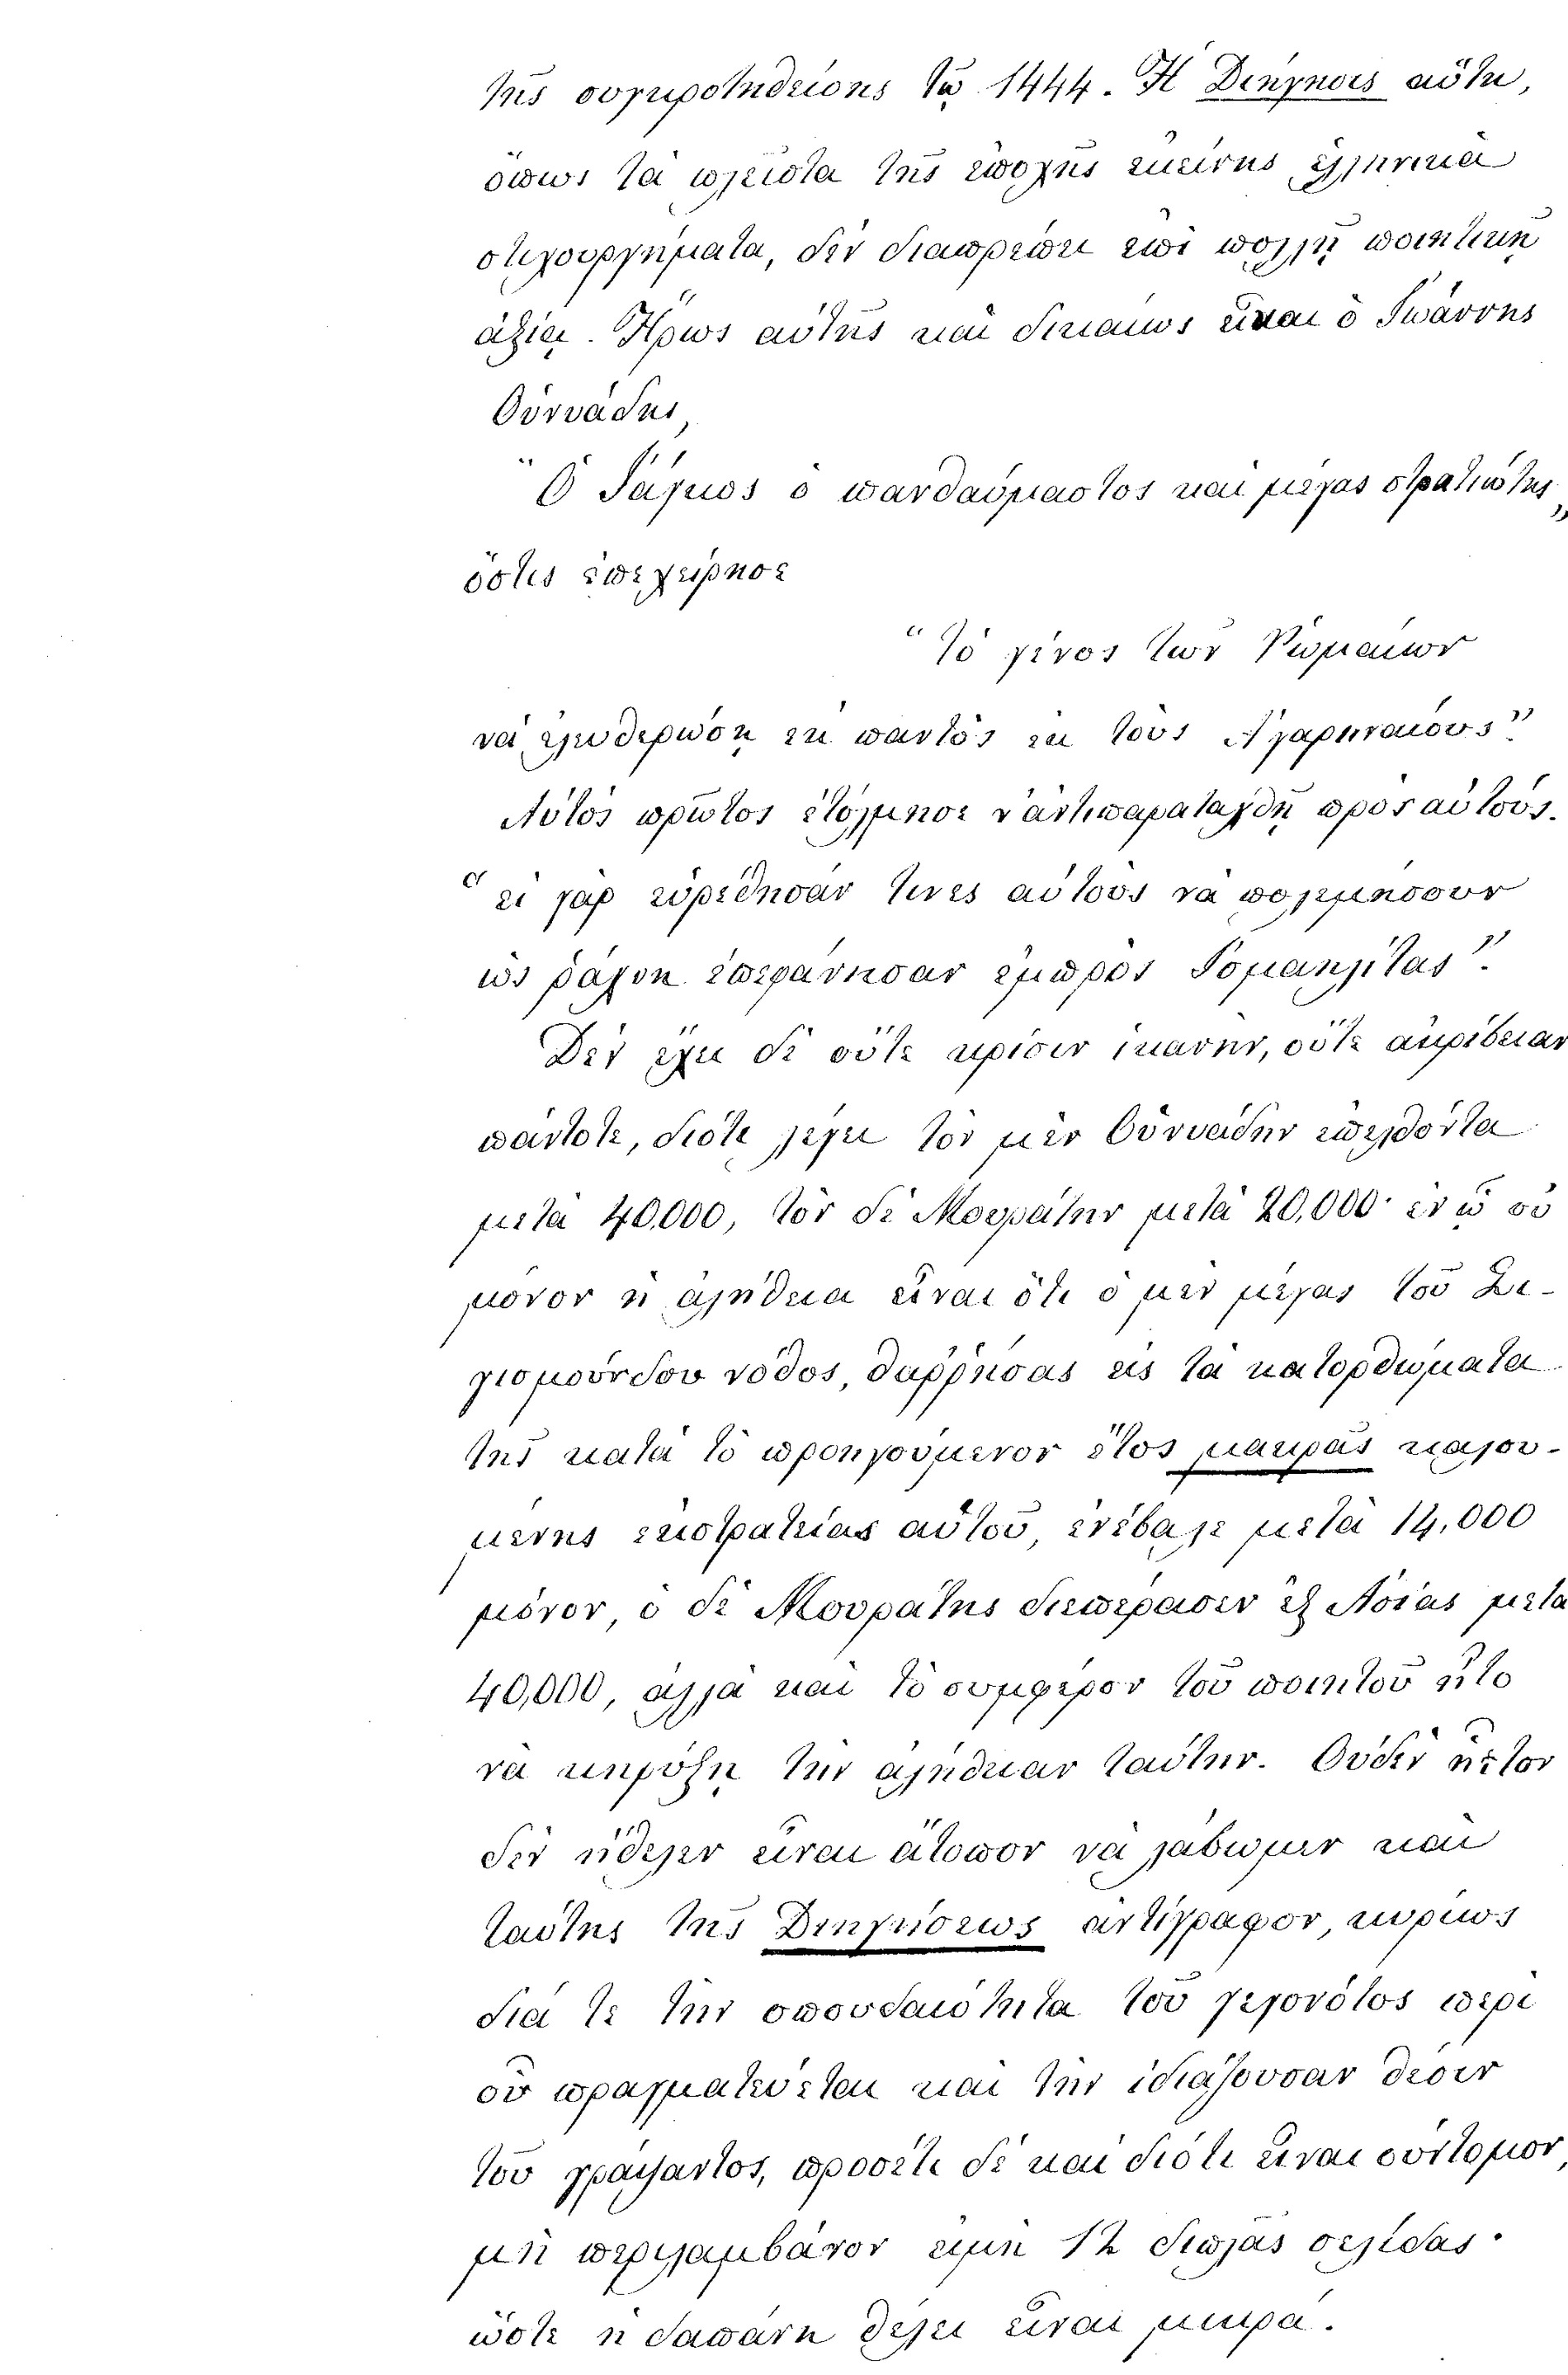 τῆς συγκροτηθείσης τῷ 1444. Ἡ Διήγησις αὕτη,
ὅπως τὰ πλεῖστα τῆς ἐποχῆς ἐκείνης ἑλληνικὰ
στιχουργήματα, δὲν διαπρέπει ἐπὶ πολλῇ ποιητικῇ
ἀξίᾳ. Ἥρως αὐτῆς καὶ δικαίως εἶναι ὁ Ἰωάννης
Οὐνιάδης,
"Ὁ Ἰάγκος ὁ πανθαύμαστος καὶ μέγας στρατιώτης„
ὅστις ἐπεχείρησε
"τὸ γένος τῶν Ῥωμαίων
νὰ ἐλευθερώσῃ ἐκ παντὸς ἐκ τοὺς Ἀγαρηναίους".
Αὐτὸς πρῶτος ἐτόλμησε ν' ἀντιπαραταχθῇ πρὸς αὐτούς.
"εἰ γὰρ εὑρέθησάν τινες αὐτοὺς νὰ πολεμήσουν
ὡς ῥάχου ἐπεφάνησαν ἐμπρὸς Ἰσμαηλίτας".
Δὲν ἔχει δὲ οὔτε κρίσιν ἱκανήν, οὔτε ἀκρίβειαν
πάντοτε, διότι λέγει τὸν μὲν Οὐνιάδην ἐπελθόντα
μετὰ 40.000, τὸν δὲ Μουράτην μετὰ 20,000· ἐν ᾧ οὐ
μόνον ἡ ἀλήθεια εἶναι ὅτι ὁ μὲν μέγας τοῦ Σι-
γισμούνδου νόθος, θαῤῥήσας εἰς τὰ κατορθώματα
τῆς κατὰ τὸ προηγούμενον ἔτος μακρᾶς καλου-
μένης ἐκστρατείας αὐτοῦ, ἐνέβαλε μετὰ 14,000
μόνον, ὁ δὲ Μουράτης διεπέρασεν ἐξ Ἀσίας μετὰ
40,000, ἀλλὰ καὶ τὸ συμφέρον τοῦ ποιητοῦ ἦτο
νὰ κηρύξῃ τὴν ἀλήθειαν ταύτην. Οὐδὲν ἧττον
δὲν ἤθελεν εἶναι ἄτοπον νὰ λάβωμεν καὶ
ταύτης τῆς Διηγήσεως ἀντίγραφον, κυρίως
διά τε τὴν σπουδαιότητα τοῦ γεγονότος περὶ
οὗ πραγματεύεται καὶ τὴν ἰδιάζουσαν θέσιν
τοῦ γράψαντος, προσέτι δὲ καὶ διότι εἶναι σύντομον,
μὴ περιλαμβάνον εἰμὴ 12 διπλᾶς σελίδας·
ὥστε ἡ δαπάνη θέλει εἶναι μικρά.